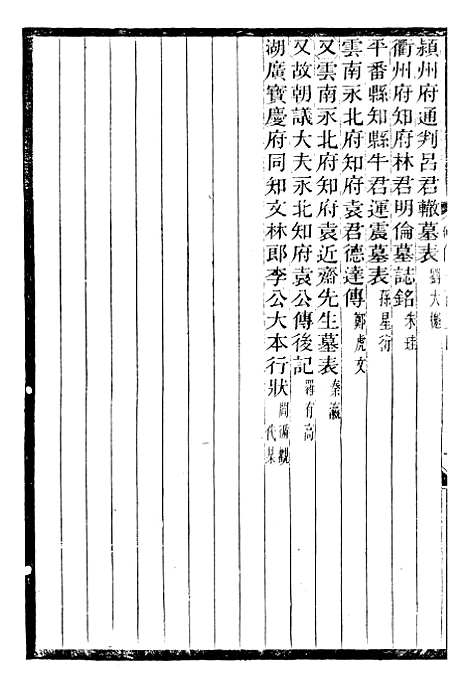 潁州府通判呂君轍墓表 劉大櫆
衢州府知府林君明倫墓誌銘 朱珪
平番縣知縣牛君運震墓表 孫星衍
雲南永北府知府袁君德達傳 鄭虎文
又雲南永北府知府袁近齋先生墓表 秦瀛
又故朝議大夫永北知府袁公傳後記 羅有高
湖廣寶慶府同知文林郎李公大本行狀 閻循觀代某